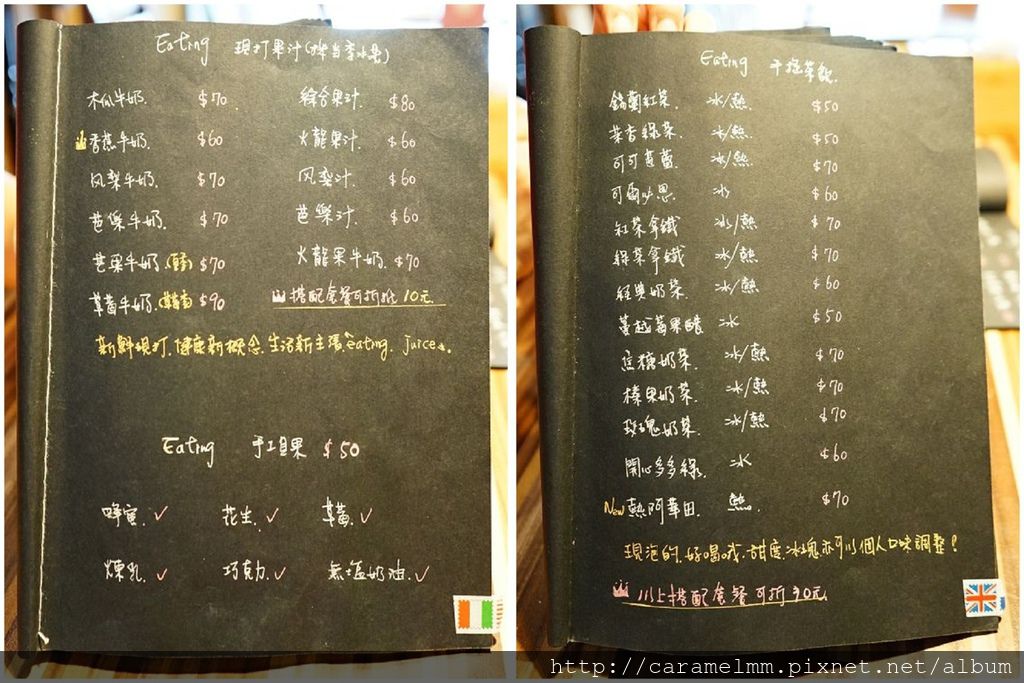 Eating 現打果汁(
木瓜牛奶. $70 綜合果汁. $80
香蕉牛奶. $60 火龍果汁. $60
鳳梨牛奶. $70 鳳梨汁. $60
芭樂牛奶. $70 芭樂汁. $60
芒果牛奶. $70 火龍果牛奶. $70
草莓牛奶. $90 搭配套餐可折抵 10元
新鮮現打. 健康新概念. 生活新主張. eating. juice.
Eating 手工貝果 $50
蜂蜜. ✓ 花生. ✓ 草莓. ✓
煉乳. ✓ 巧克力. ✓ 無塩奶油. ✓
Eating 手搖茶飲.
錫蘭紅茶. 冰/熱. $50
茉香綠茶. 冰/熱. $50
可可 冰/熱. $70
可爾必思. 冰 $60
紅茶拿鐵 冰/熱 $70
綠茶拿鐵 冰/熱 $70
經典奶茶. 冰/熱 $60
蔓越莓果醋. 冰 $50
焦糖奶茶. 冰/熱 $70
榛果奶茶. 冰/熱 $70
玫瑰奶茶. 冰/熱 $70
開心多多綠. 冰 $60
New 熱阿華田. 熱. $70
現泡的. 好喝哦. 甜度. 冰塊亦可以個人口味調整!
以上搭配套餐可折30元
http://caramelmm.pixnet.net/album